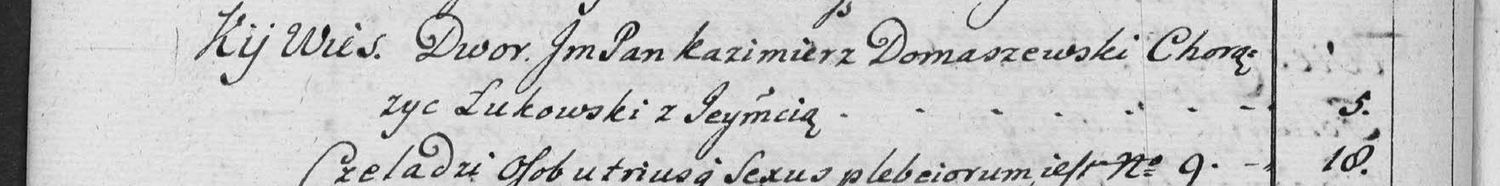 Kij Wieś. Dwor. Jm Pan Kazimierz Domaszewski Chorą=
życ Łukowski z Jeymcią . - - - . - - 5.
Czeladzi Osob utriusq Sexus plebeiorum iest No 9. - 18.